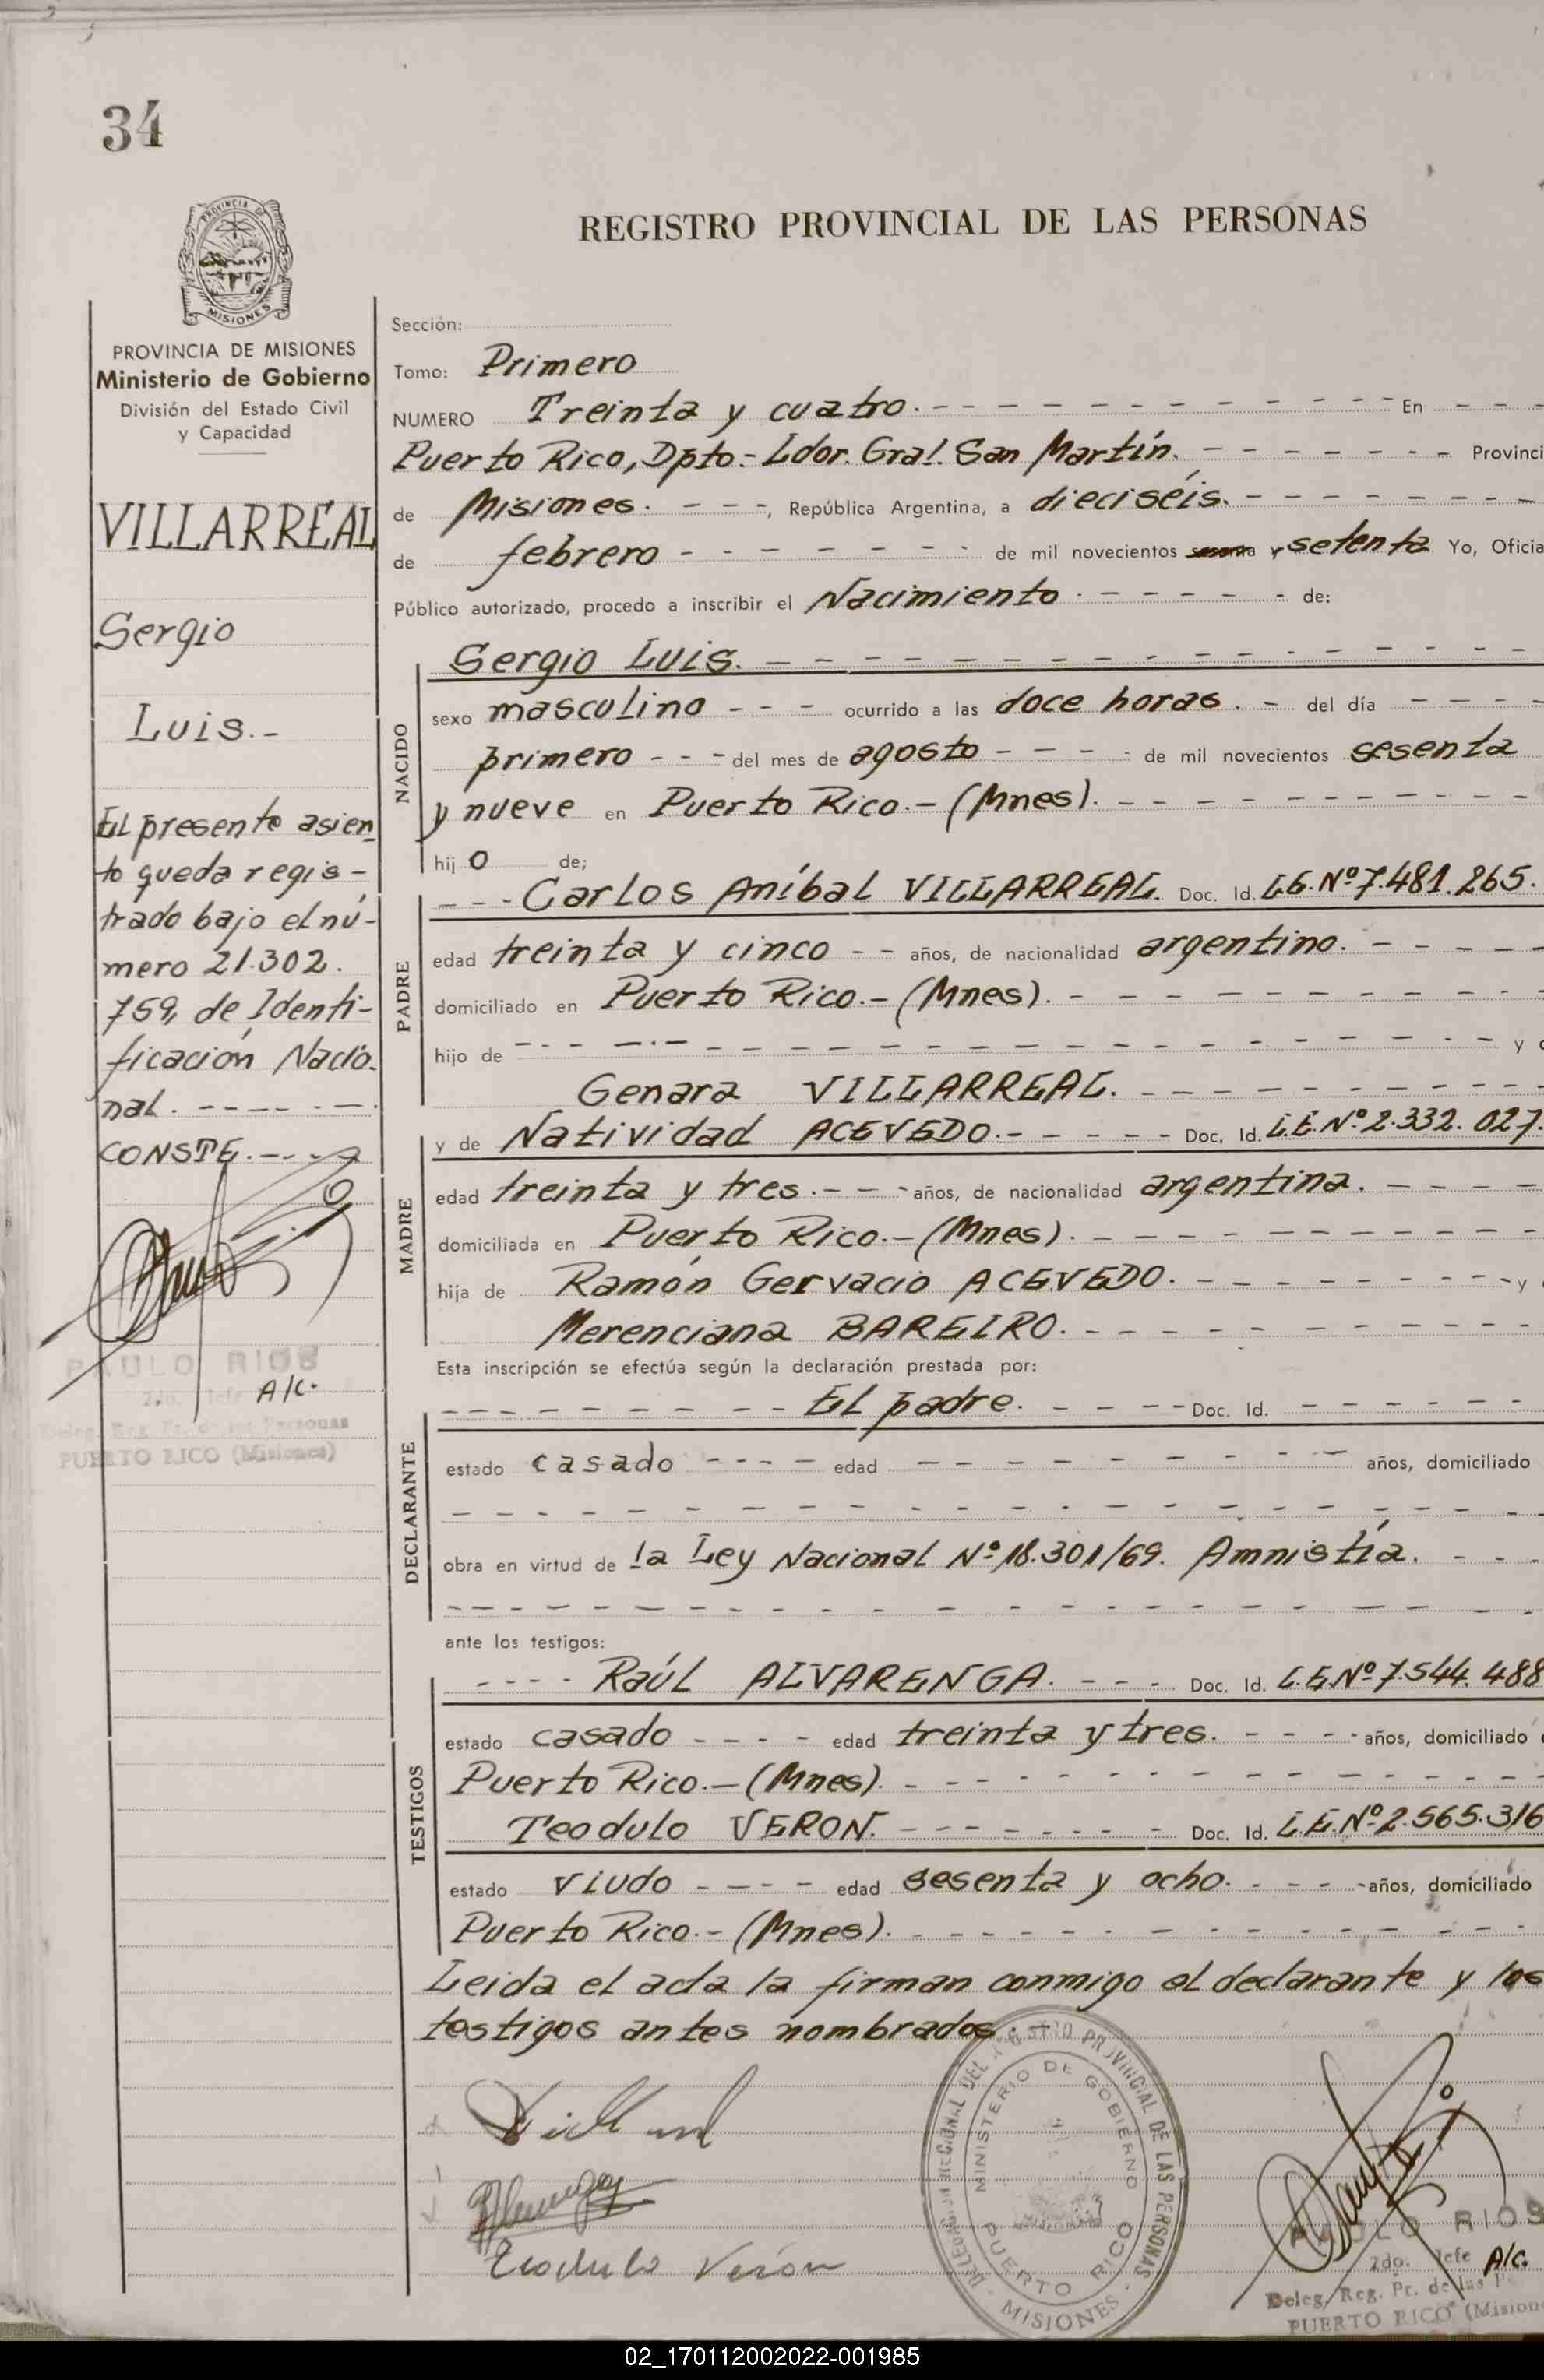 34
REGISTRO PROVINCIAL DE LAS PERSONAS
PROVINCIA
MISIONES
PROVINCIA DE MISIONES
Ministerio de Gobierno
División del Estado Civil
y Capacidad
VILLARREAL
Sergio
Luis.-
El presente asien
to queda regis-
trado bajo el nú-
mero 21.302.
759, de Identi-
ficación Nacio.
nal. - - - - - -
CONSTE. - - - -
PAULO RIOS
2do. Jefe A/C.
Deleg. Reg. Pr. de las Personas
PUERTO RICO (Misiones)
Sección:
Tomo: Primero
NUMERO Treinta y cuatro. - - - - - - - - - - En - - -
Puerto Rico, Dpto.- Ldor. Gral. San Martín. - - - - - - - Provinci
de Misiones. - - -, República Argentina, a dieciséis. - - - - - - -
de febrero - - - - - - - de mil novecientos sesenta y setenta Yo, Oficia
Público autorizado, procedo a inscribir el Nacimiento - - - - - - de:
NACIDO
Sergio Luis. - - - - - - - - - - - - - - -
sexo masculino - - - ocurrido a las doce horas. - del día - - - -
primero - - - del mes de agosto - - - - - de mil novecientos sesenta
y nueve en Puerto Rico.- (Mnes). - - - - - - - - -
hijo de;
PADRE
- - - Carlos Aníbal VILLARREAL. Doc. Id. L.E. Nº 7.481.265.
edad treinta y cinco - - años, de nacionalidad argentino. - - - - -
domiciliado en Puerto Rico.- (Mnes). - - - - - - - - - -
hijo de - - - - - - - - - - - - - - - - - - y
Genara VILLARREAL. - - - - - - - - -
MADRE
y de Natividad ACEVEDO. - - - - - - Doc. Id. L.E. Nº 2.332.027.
edad treinta y tres. - - - años, de nacionalidad argentina. - - - -
domiciliada en Puerto Rico.- (Mnes). - - - - - - - - - -
hija de Ramón Gervacio ACEVEDO. - - - - - - - - y
Merenciana BAREIRO. - - - - - - - - - -
Esta inscripción se efectúa según la declaración prestada por:
DECLARANTE
- - - - - - - - El padre. - - - - Doc. Id. - - - - - -
estado casado - - - - edad - - - - - - - - - años, domiciliado
- - - - - - - - - - - - - - - - - - - - - - -
obra en virtud de la Ley Nacional Nº 18.301/69. Amnistía. - - -
- - - - - - - - - - - - - - - - - - - - - - -
ante los testigos:
TESTIGOS
- - - - Raúl ALVARENGA. - - - Doc. Id. L.E. Nº 7.544.488
estado casado - - - - edad treinta y tres. - - - - años, domiciliado
Puerto Rico.- (Mnes). - - - - - - - - - - - - -
Teodulo VERON. - - - - - - - Doc. Id. L.E. Nº 2.565.316
estado viudo - - - - edad sesenta y ocho. - - - - años, domiciliado
Puerto Rico.- (Mnes). - - - - - - - - - - - - -
Leida el acta la firman conmigo el declarante y los
testigos antes nombrados. -
DELEGACION REGIONAL DEL REGISTRO PROVINCIAL DE LAS PERSONAS
MINISTERIO DE GOBIERNO
PUERTO RICO
- MISIONES -
Teodulo Verón
PAULO RIOS
2do. Jefe A/C.
Deleg. Reg. Pr. de las Pe
PUERTO RICO (Mision
02_170112002022-001985